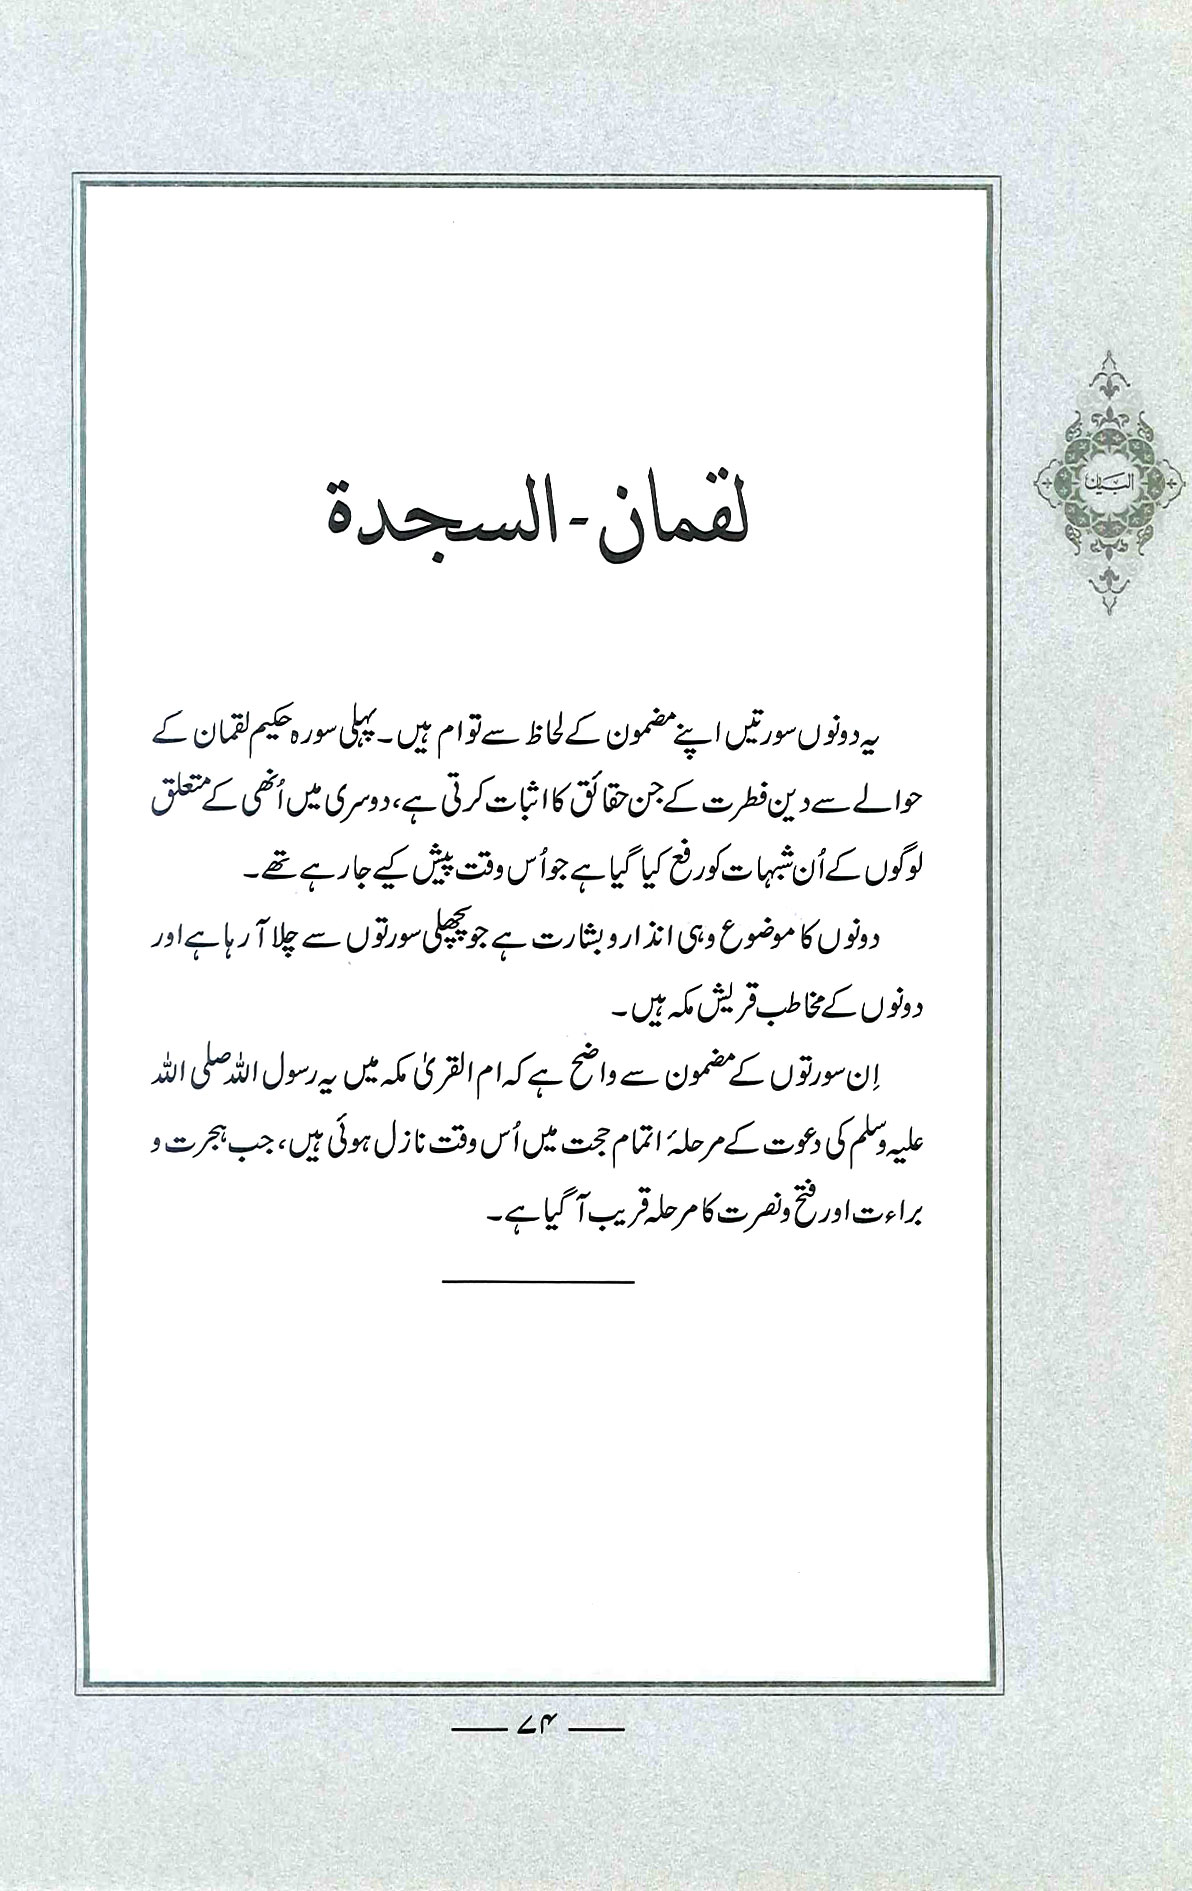 البیان
لقمان - السجدة
یہ دونوں سورتیں اپنے مضمون کے لحاظ سے توام ہیں۔ پہلی سورہ حکیم لقمان کے
حوالے سے دین فطرت کے جن حقائق کا اثبات کرتی ہے، دوسری میں اُنھی کے متعلق
لوگوں کے اُن شبہات کو رفع کیا گیا ہے جو اُس وقت پیش کیے جا رہے تھے۔
دونوں کا موضوع وہی انذار و بشارت ہے جو پچھلی سورتوں سے چلا آ رہا ہے اور
دونوں کے مخاطب قریش مکہ ہیں۔
اِن سورتوں کے مضمون سے واضح ہے کہ ام القریٰ مکہ میں یہ رسول اللہ صلی اللہ
علیہ وسلم کی دعوت کے مرحلۂ اتمام حجت میں اُس وقت نازل ہوئی ہیں، جب ہجرت و
براءت اور فتح و نصرت کا مرحلہ قریب آ گیا ہے۔
۷۴